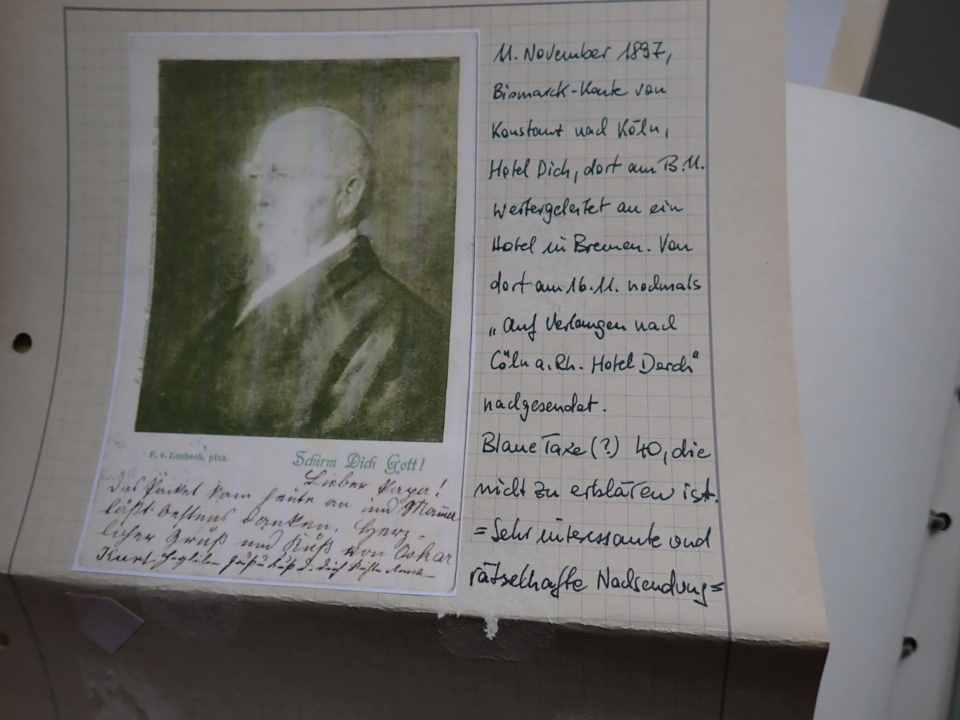 11. November 1897,
Bismarck-Karte von
Konstanz nach Köln,
Hotel Dich, dort am 13.11.
weitergeleitet an ein
Hotel in Bremen. Von
dort am 16.11. nochmals
„auf Verlangen nach
Cöln a. Rh. Hotel Disch"
nachgesendet.
Blaue Taxe (?) 40, die
nicht zu erklären ist.
= Sehr interessante und
rätselhafte Nachsendung =
F. v. Lenbach, pinx.
Schirm Dich Gott!
Lieber Papa!
Das Packet kam heute an und Mama
läßt bestens danken. Herz-
licher Gruß und Kuß von Oskar
Kurt